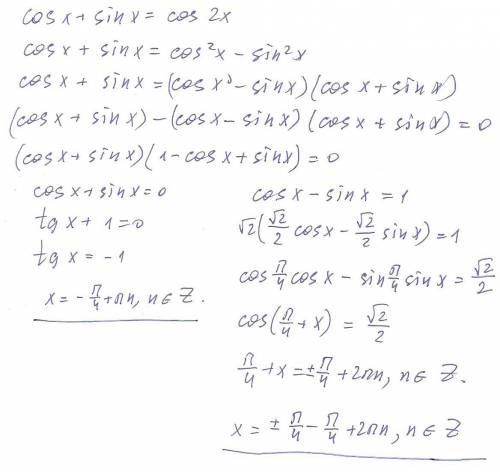 cos x + sin x = cos 2x
cos x + sin x = cos²x - sin²x
cos x + sin x = (cos x - sin x)(cos x + sin x)
(cos x + sin x) - (cos x - sin x)(cos x + sin x) = 0
(cos x + sin x)(1 - cos x + sin x) = 0
cos x + sin x = 0
tg x + 1 = 0
tg x = -1
x = -π/4 + πn, n ∈ Z.
cos x - sin x = 1
√2(√2/2 cos x - √2/2 sin x) = 1
cos π/4 cos x - sin π/4 sin x = √2/2
cos(π/4 + x) = √2/2
π/4 + x = ± π/4 + 2πn, n ∈ Z.
x = ± π/4 - π/4 + 2πn, n ∈ Z